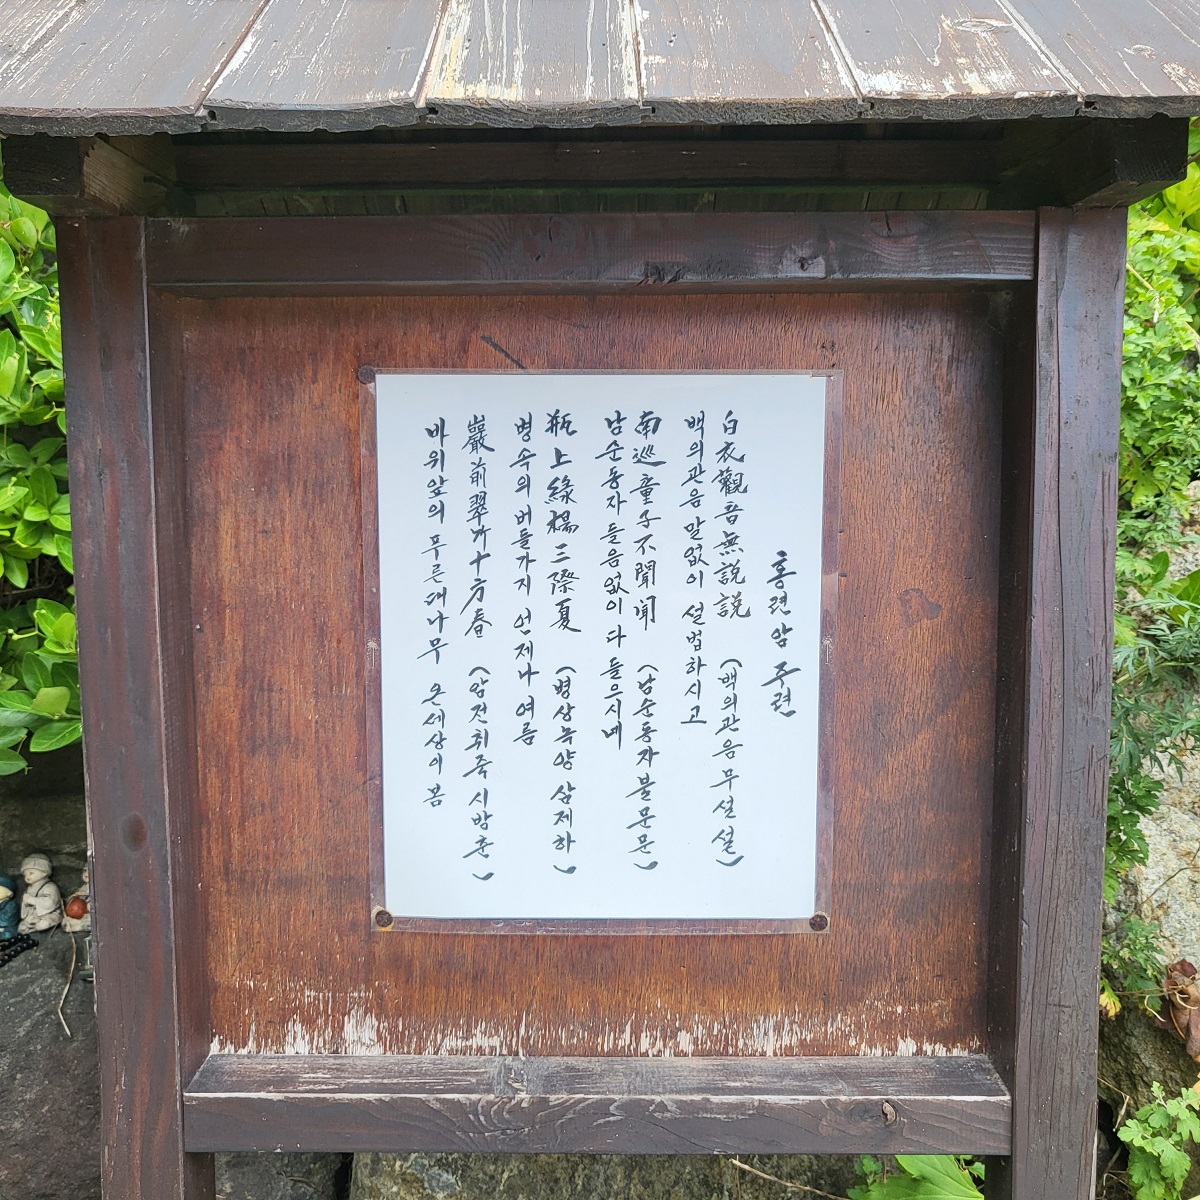 홍련암 주련
白衣觀音無說說 (백의관음무설설)
백의관음 말없이 설법하시고
南巡童子不聞聞 (남순동자불문문)
남순동자 들음없이 다 들으시네
瓶上綠楊三際夏 (병상녹양 삼제하)
병속의 버들가지 언제나 여름
巖前翠竹十方春 (암전취죽 시방춘)
바위앞의 푸른대나무 온세상이 봄